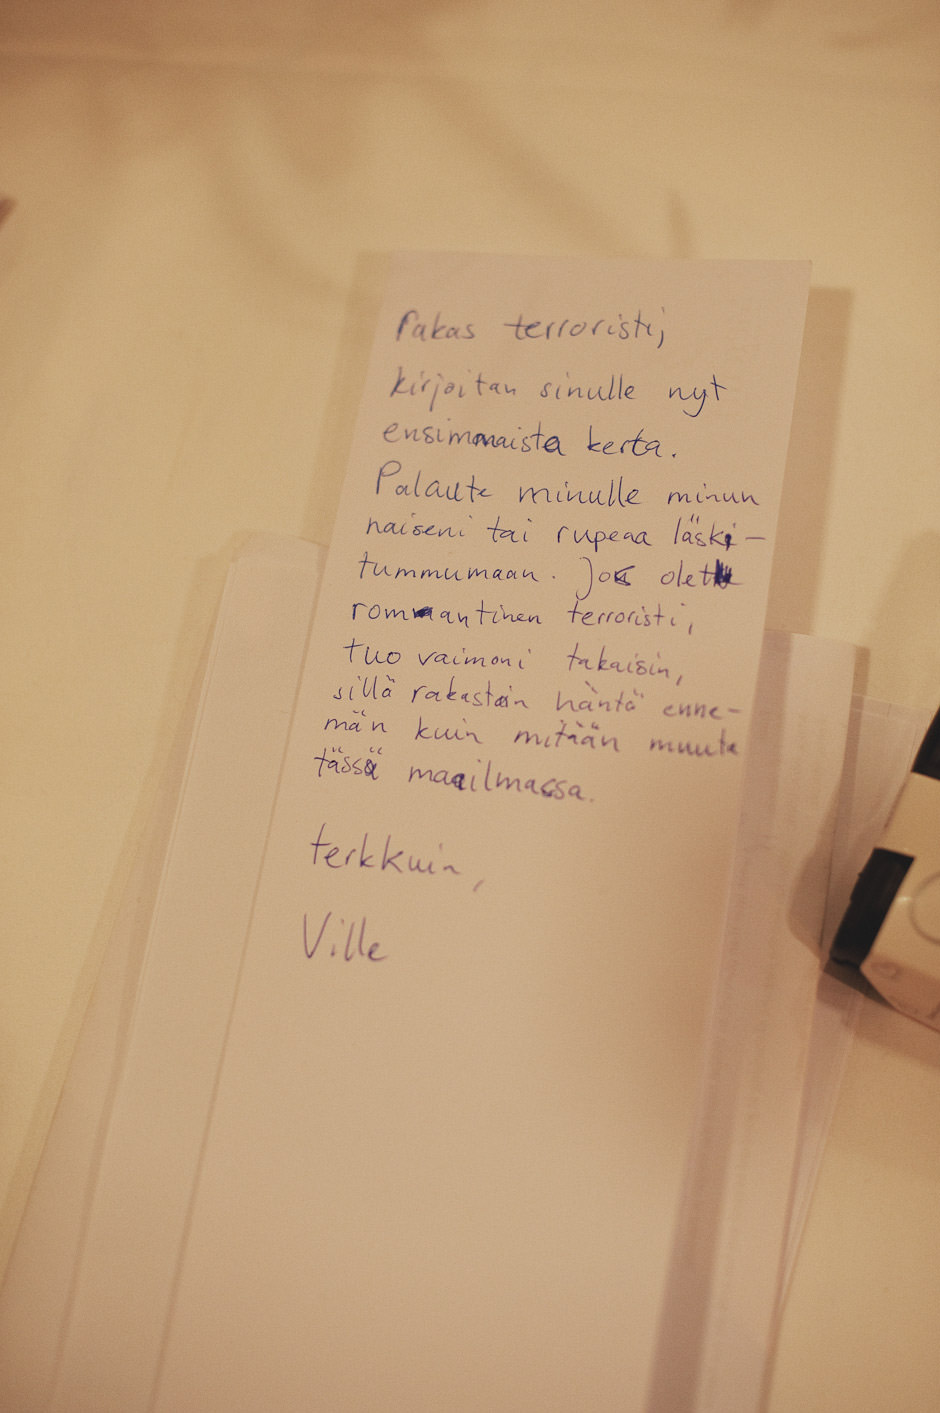 Rakas terroristi,
kirjoitan sinulle nyt
ensimmaista kerta.
Palauta minulle minun
naiseni tai rupeaa läski-
tummumaan. Jos olet
romaantinen terroristi,
tuo vaimoni takaisin,
sillä rakastain häntä enne-
män kuin mitään muuta
tässä maailmassa.
terkkuin,
Ville